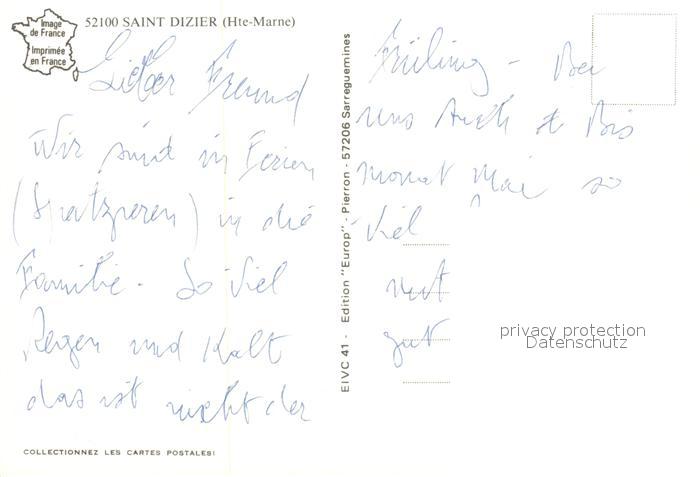 Image
de France
Imprimée
en France
52100 SAINT DIZIER (Hte-Marne)
Lieber Freund
Wir sind in Ferien
in die
Familie. So viel
Regen und Kalt
das ist nicht der
COLLECTIONNEZ LES CARTES POSTALES!
EIVC 41 - Edition "Europ" - Pierron - 57206 Sarreguemines
Früling - Bei
uns Auch Bis
monat Mai so
viel
nut
gut
privacy protection
Datenschutz